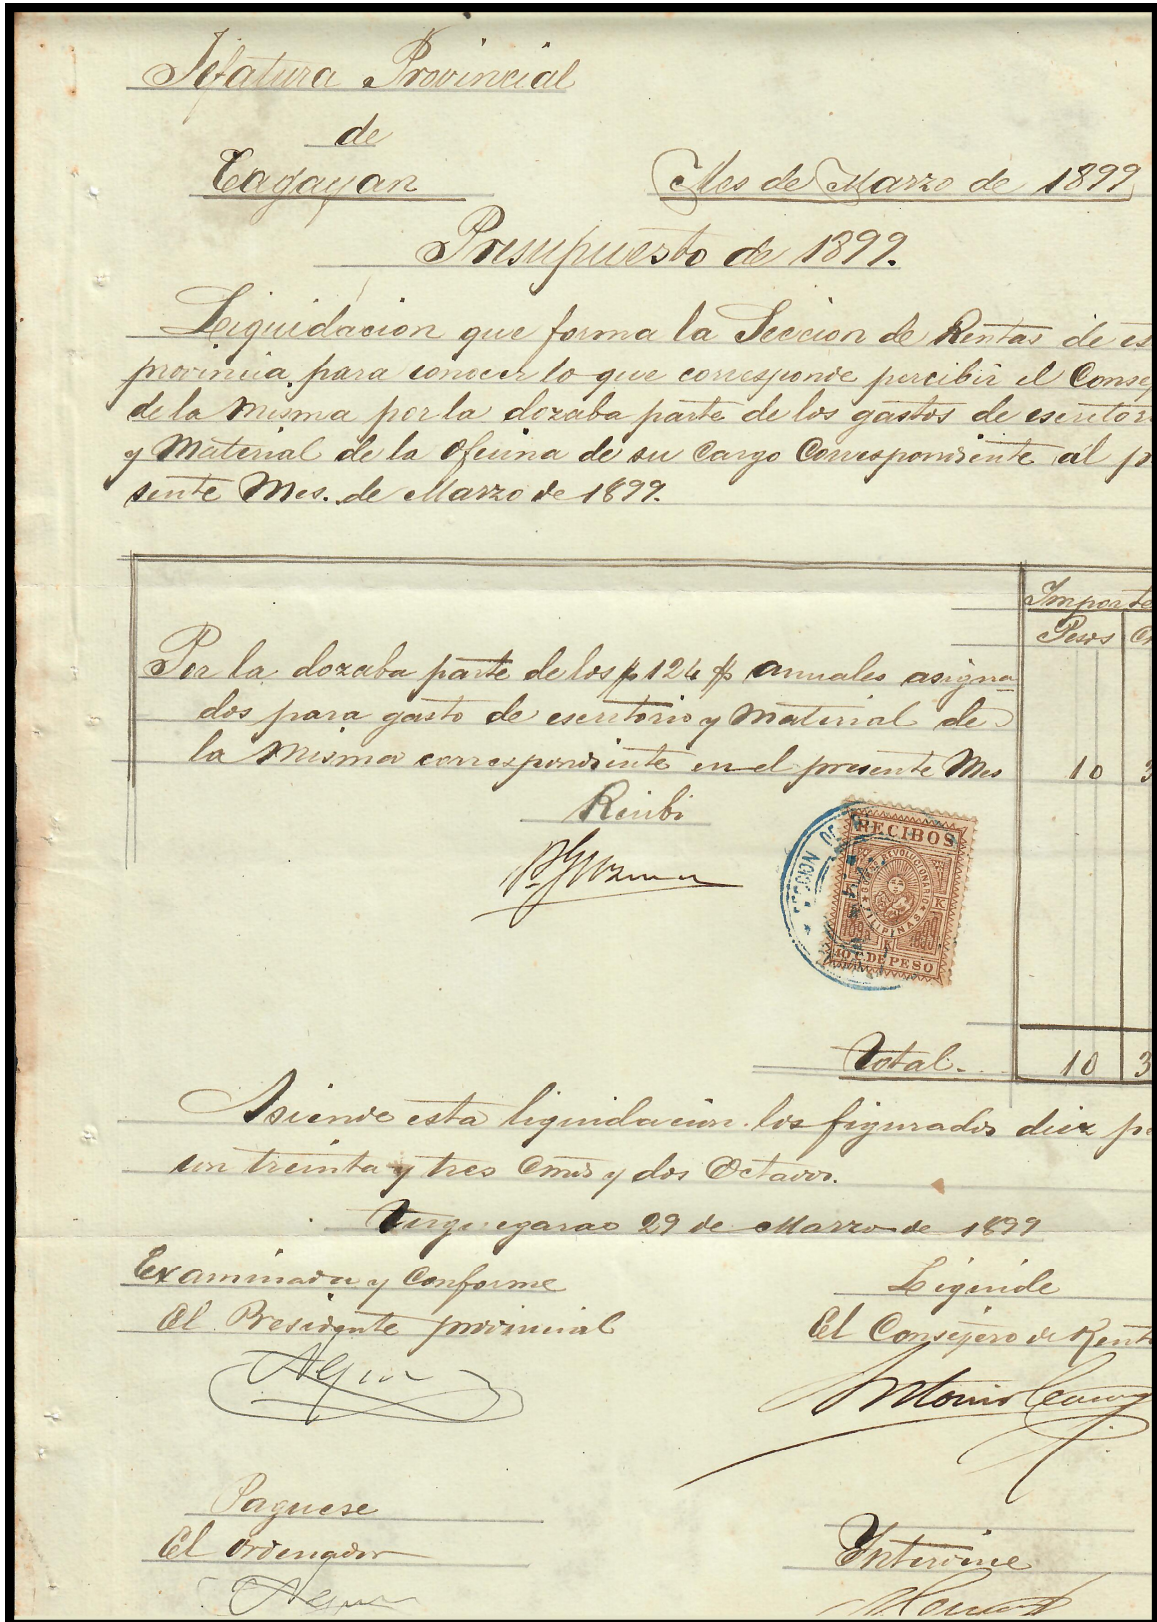 Jefatura Provincial
de
Cagayan
Mes de Marzo de 1899
Presupuesto de 1899.
Liquidacion que forma la Seccion de Rentas de es
provincia, para conocer lo que corresponde percibir el Consej
de la Misma por la dozaba parte de los gastos de escritori
y Material de la Oficina de su Cargo Correspondiente al pre
sente Mes. de Marzo de 1899.
Importe
Pesos
Por la dozaba parte de los $ 124 $ anuales asigna-
dos para gasto de escritorio y Material de
la Misma correspondiente en el presente Mes 10 3
Recibi
P. Guzman
SECCION DE
RECIBOS
GOBIERNO REVOLUCIONARIO
FILIPINAS
K K K
1898 1899
10 C. DE PESO
Total. 10 3
Asciende esta liquidacion los figurados diez pe
con treinta y tres Cmos y dos Octavos.
Tuguegarao 29 de Marzo de 1899
Examinada y Conforme
El Presidente provincial
Liquide
El Consejero de Renta
Antonio
Paguese
El Ordenador
Intervine